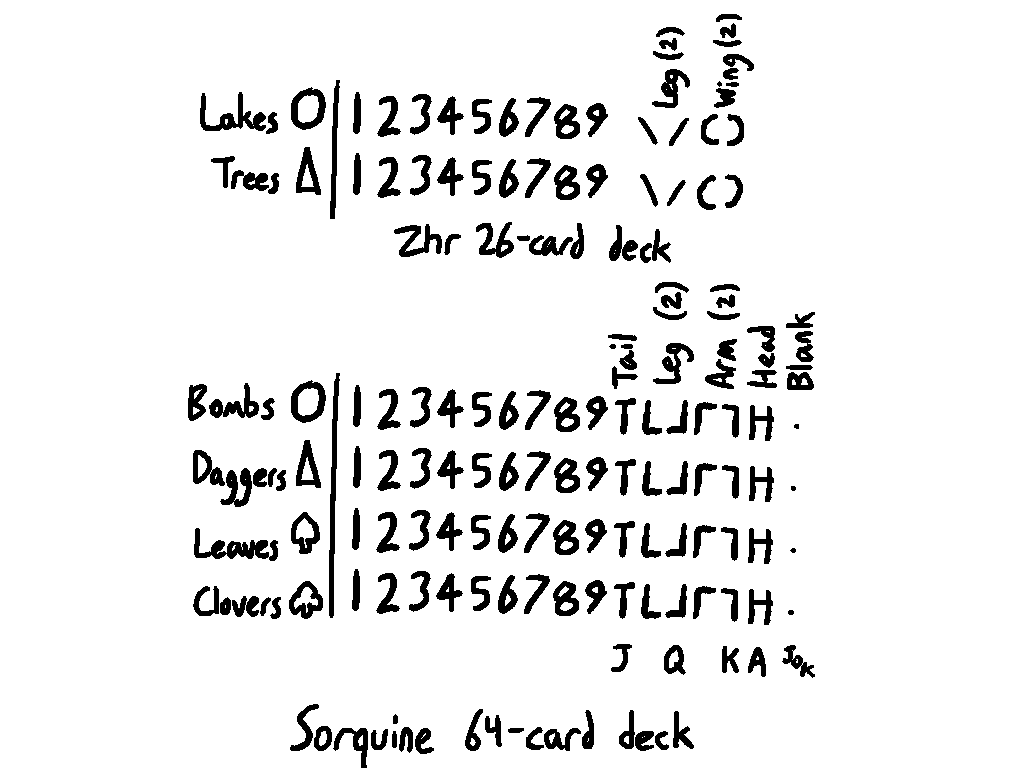 Leg (2) Wing (2)
Lakes O | 1 2 3 4 5 6 7 8 9 \ / ( )
Trees Δ | 1 2 3 4 5 6 7 8 9 \ / ( )
Zhr 26-card deck
Tail Leg (2) Arm (2) Head Blank
Bombs O | 1 2 3 4 5 6 7 8 9 T L ⅃ Γ ⅂ H .
Daggers Δ | 1 2 3 4 5 6 7 8 9 T L ⅃ Γ ⅂ H .
Leaves | 1 2 3 4 5 6 7 8 9 T L ⅃ Γ ⅂ H .
Clovers | 1 2 3 4 5 6 7 8 9 T L ⅃ Γ ⅂ H .
J Q K A Jok
Sorquine 64-card deck